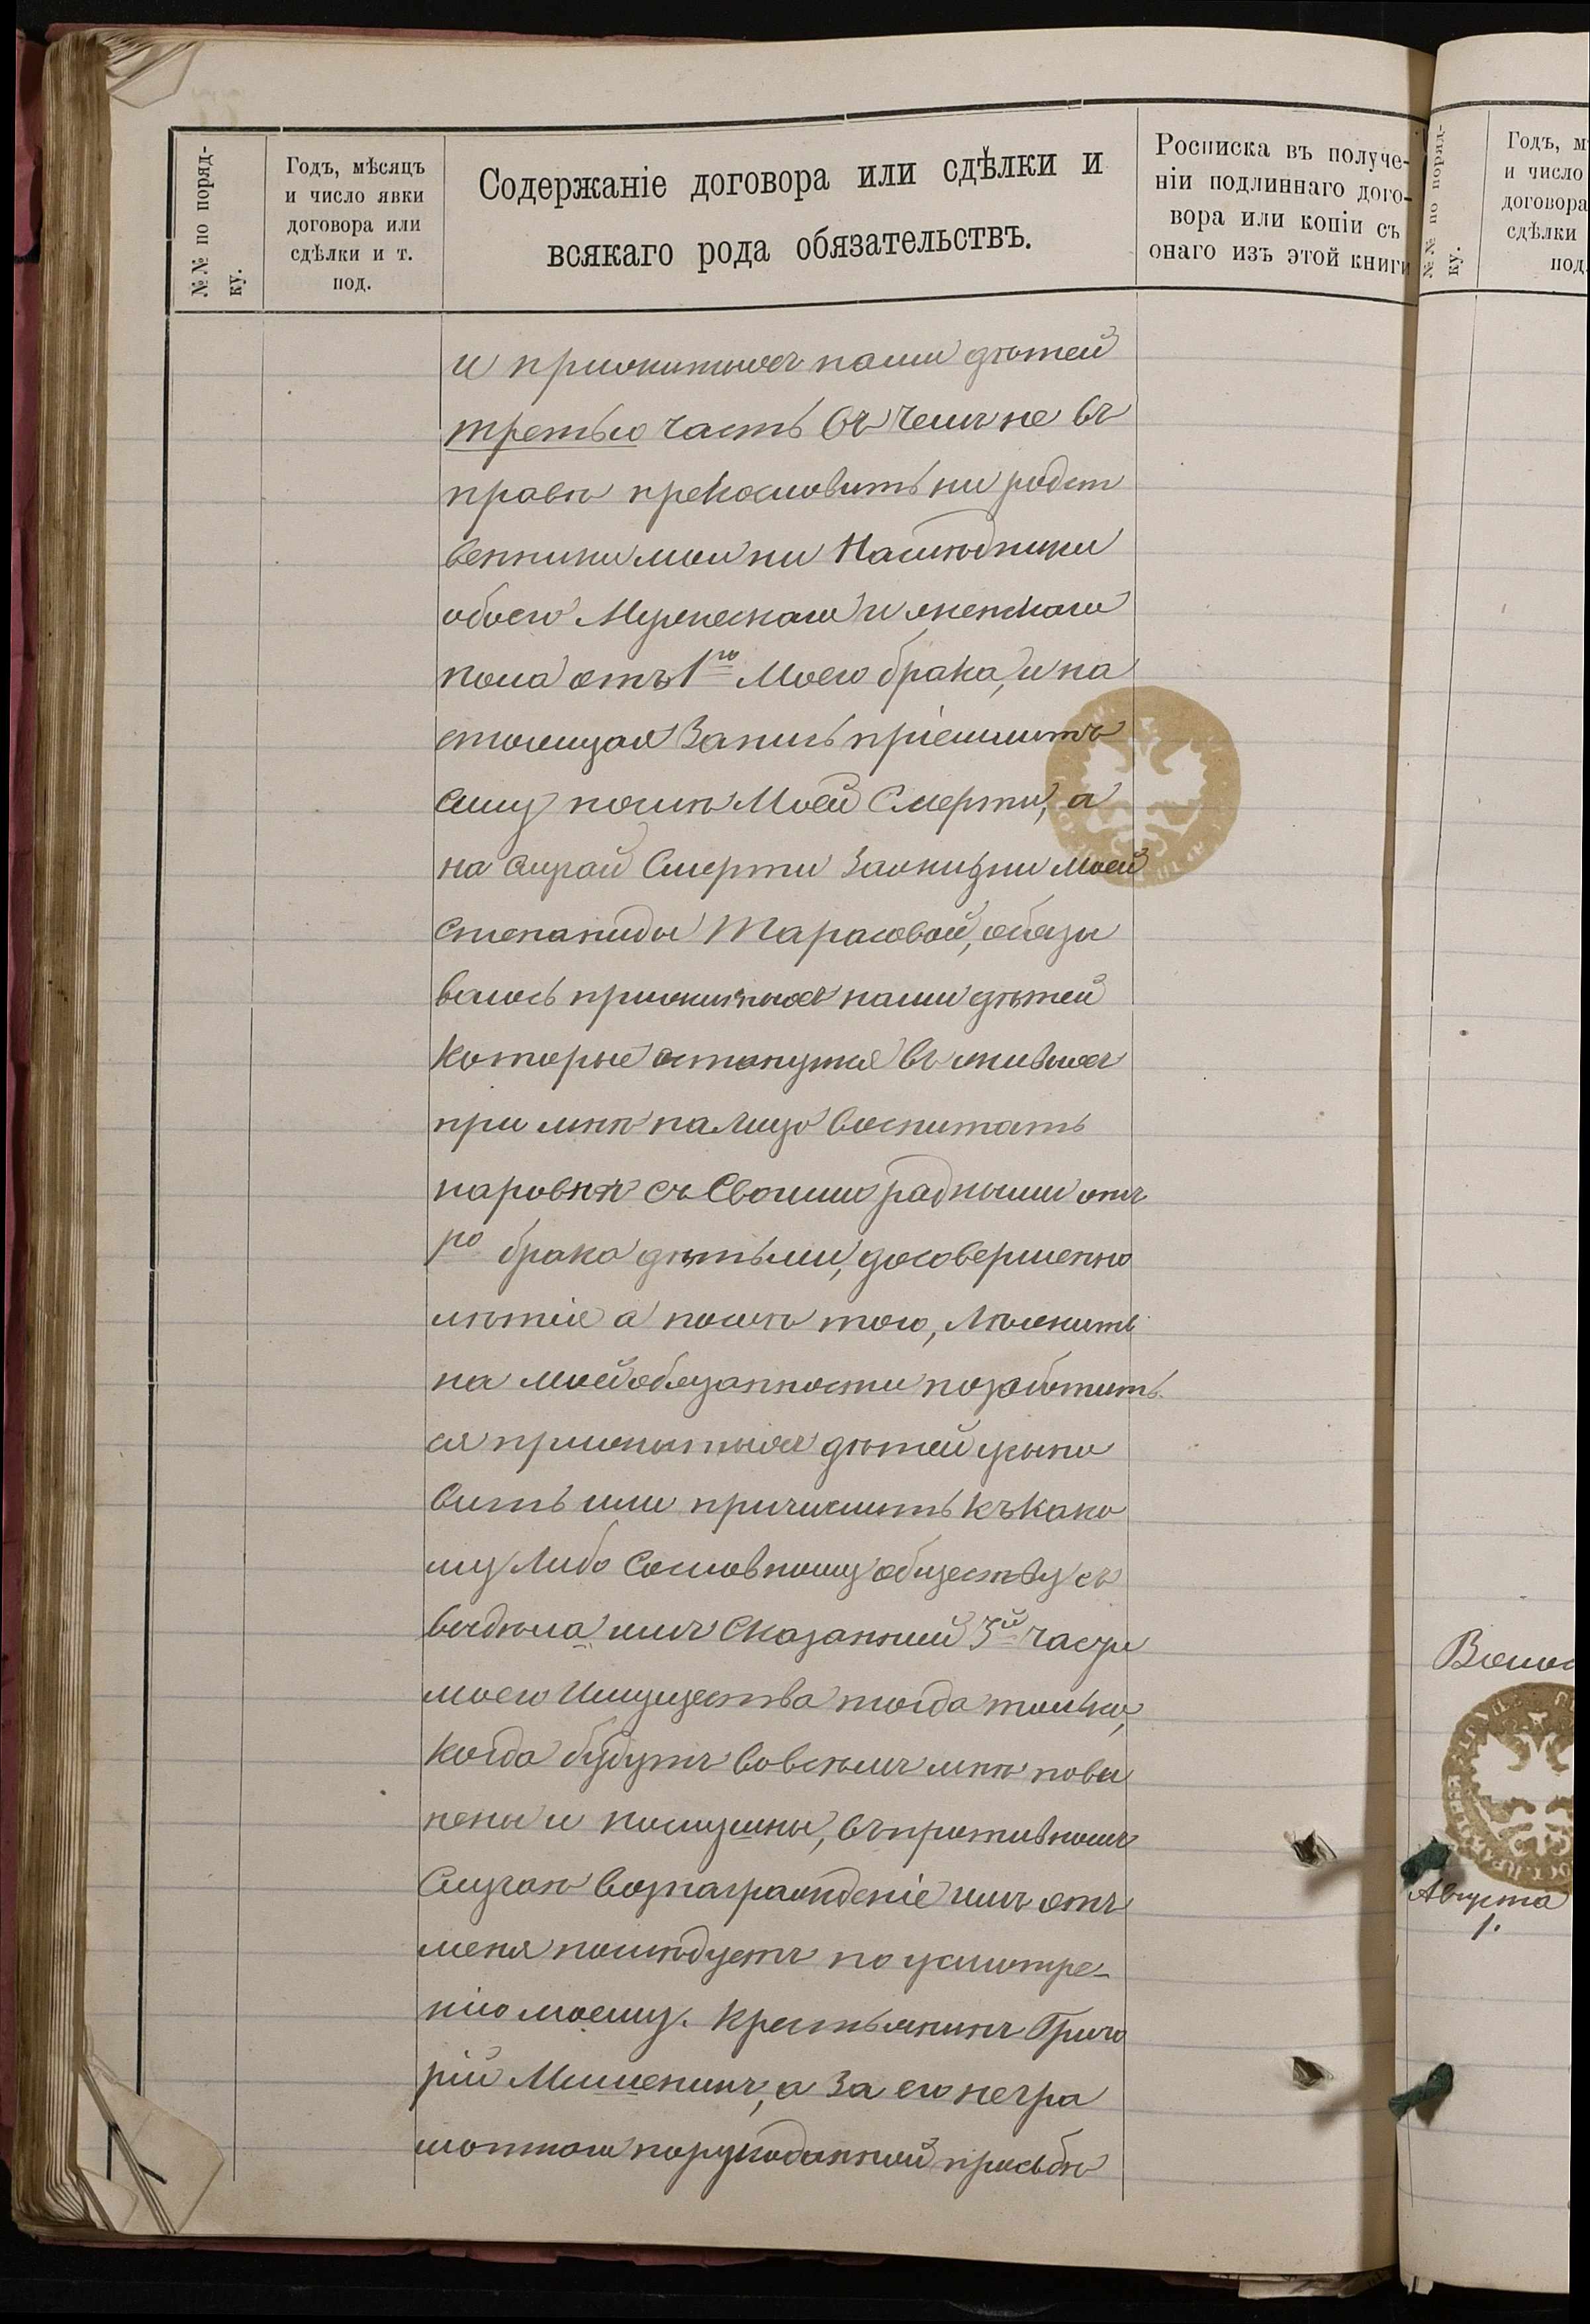 №№ по поряд-
ку.
Годъ, мѣсяцъ
и число явки
договора или
сдѣлки и т.
под.
Содержаніе договора или сдѣлки и
всякаго рода обязательствъ.
Росписка въ получе-
ніи подлиннаго дого-
вора или копіи съ
онаго изъ этой книги
и прижитыхъ нами дѣтей
третью часть въ чемъ не въ
правѣ прекословить ни родст
венники мои ни Наслѣдники
обоего Мужескаго и женскаго
пола отъ 1го Моего брака, и на
стоящая Запись пріемлитъ
силу послѣ Моей Смерти, а
на случай Смерти Зажизни моей
Степаниды Тарасовой, обязы
ваюсь прижитыхъ нами дѣтей
которые останутся въ живыхъ
при мнѣ на лицо воспитать
наровнѣ съ Своими радными отъ
1го брака дѣтьми, досовершенно
лѣтія а послѣ того, Лѣжить
на моей обязанности позаботить
ся прижитыхъ дѣтей усыно
вить или причислить къ како
му либо Сословному обществу съ
выдѣла имъ Сказанной 3й части
моего Имущества тогда только,
когда будутъ вовсѣмъ мнѣ пови
нены и послушны, въ противномъ
Случаѣ вознагражденіе имъ отъ
меня послѣдуетъ по усмотре-
нію моему. Крестьянинъ Григо
рій Мишенинъ, а За его негра
мотнаго порукоданной просьбѣ
№№ по поряд-
ку.
Годъ, м
и число
договора
сдѣлки
под.
Августа
1.